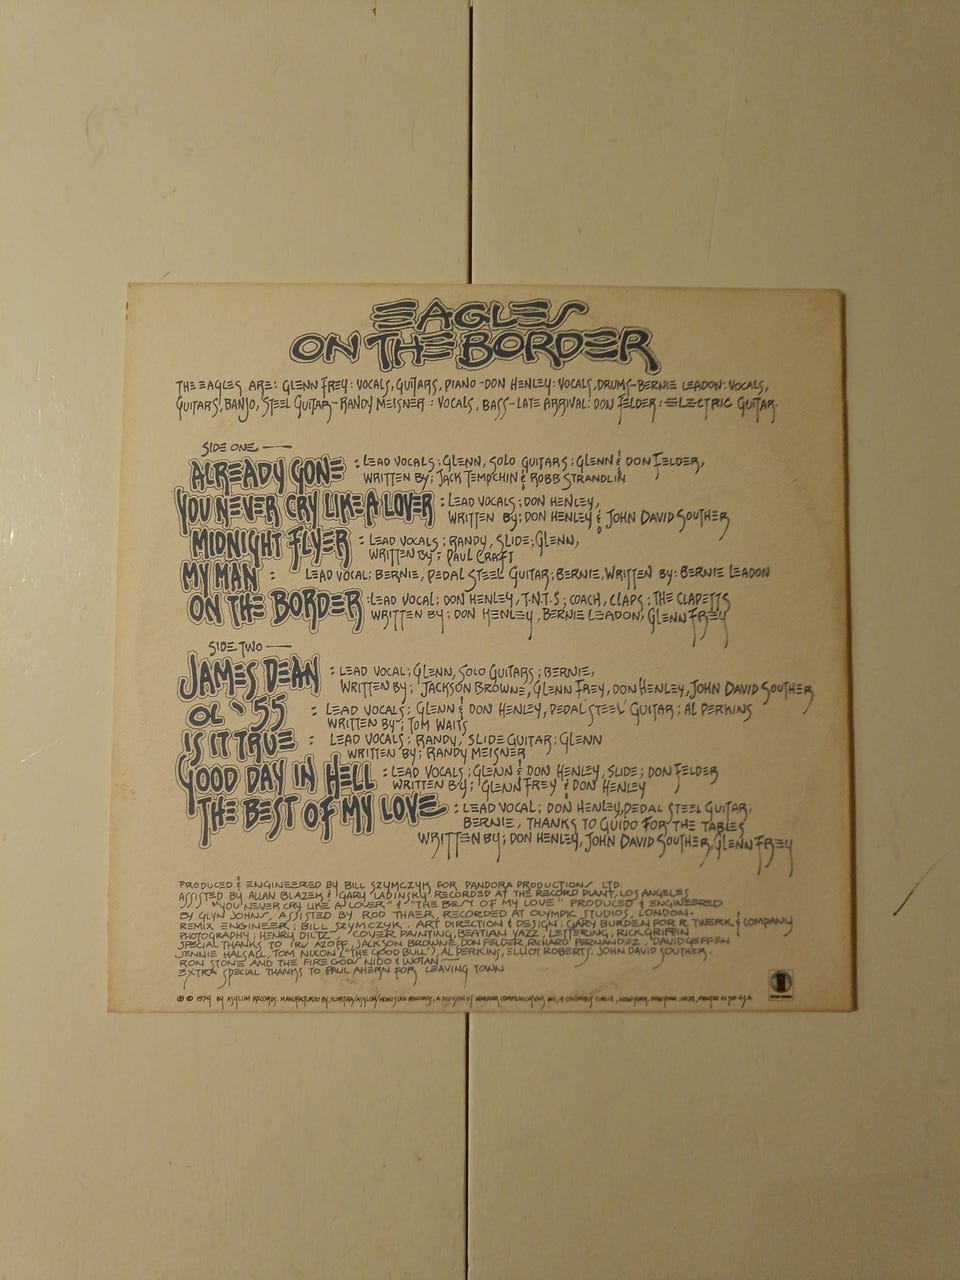 EAGLES
ON THE BORDER
THE EAGLES ARE: GLENN FREY: VOCALS, GUITARS, PIANO - DON HENLEY: VOCALS, DRUMS - BERNIE LEADON: VOCALS,
GUITARS, BANJO, STEEL GUITAR - RANDY MEISNER: VOCALS, BASS - LATE ARRIVAL: DON FELDER: ELECTRIC GUITAR.
SIDE ONE
ALREADY GONE : LEAD VOCALS; GLENN, SOLO GUITARS; GLENN & DON FELDER,
WRITTEN BY; JACK TEMPCHIN & ROBB STRANDLIN
YOU NEVER CRY LIKE A LOVER : LEAD VOCALS; DON HENLEY,
WRITTEN BY; DON HENLEY & JOHN DAVID SOUTHER
MIDNIGHT FLYER : LEAD VOCALS; RANDY, SLIDE; GLENN,
WRITTEN BY; PAUL CRAFT
MY MAN : LEAD VOCAL; BERNIE, PEDAL STEEL GUITAR; BERNIE, WRITTEN BY: BERNIE LEADON
ON THE BORDER : LEAD VOCAL; DON HENLEY, T.N.T.S; COACH, CLAPS; THE CLAPETTS
WRITTEN BY; DON HENLEY, BERNIE LEADON, GLENN FREY
SIDE TWO
JAMES DEAN : LEAD VOCAL; GLENN, SOLO GUITARS; BERNIE,
WRITTEN BY; JACKSON BROWNE, GLENN FREY, DON HENLEY, JOHN DAVID SOUTHER
OL '55 : LEAD VOCALS; GLENN & DON HENLEY, PEDAL STEEL GUITAR; AL PERKINS
WRITTEN BY; TOM WAITS
IS IT TRUE : LEAD VOCALS; RANDY, SLIDE GUITAR; GLENN
WRITTEN BY; RANDY MEISNER
GOOD DAY IN HELL : LEAD VOCALS; GLENN & DON HENLEY, SLIDE; DON FELDER
WRITTEN BY; GLENN FREY & DON HENLEY
THE BEST OF MY LOVE : LEAD VOCAL; DON HENLEY, PEDAL STEEL GUITAR;
BERNIE, THANKS TO GUIDO FOR THE TABLES
WRITTEN BY; DON HENLEY, JOHN DAVID SOUTHER, GLENN FREY
PRODUCED & ENGINEERED BY BILL SZYMCZYK FOR PANDORA PRODUCTIONS LTD.
ASSISTED BY ALLAN BLAZEK & GARY LADINSKY, RECORDED AT THE RECORD PLANT, LOS ANGELES
"YOU NEVER CRY LIKE A LOVER" & "THE BEST OF MY LOVE" PRODUCED & ENGINEERED
BY GLYN JOHNS, ASSISTED BY ROD THAER, RECORDED AT OLYMPIC STUDIOS, LONDON.
REMIX ENGINEER; BILL SZYMCZYK. ART DIRECTION & DESIGN; GARY BURDEN FOR R. TWERK & COMPANY
PHOTOGRAPHY; HENRY DILTZ COVER PAINTING, BEATIAN YAZZ, LETTERING, RICK GRIFFIN
SPECIAL THANKS TO IRV AZOFF, JACKSON BROWNE, DON FELDER, RICHARD FERNANDEZ, DAVID GEFFEN
JENNIE HALSALL, TOM NIXON ("THE GOOD BULL"), AL PERKINS, ELLIOT ROBERTS, JOHN DAVID SOUTHER,
RON STONE AND THE FIRE GODS NIDO & WOTAN
EXTRA SPECIAL THANKS TO PAUL AHERN FOR LEAVING TOWN
℗ © 1974 BY ASYLUM RECORDS. MANUFACTURED BY ELEKTRA/ASYLUM/NONESUCH RECORDS, A DIVISION OF WARNER COMMUNICATIONS INC. 15 COLUMBUS CIRCLE, NEW YORK, NEW YORK 10023, PRINTED IN THE U.S.A.